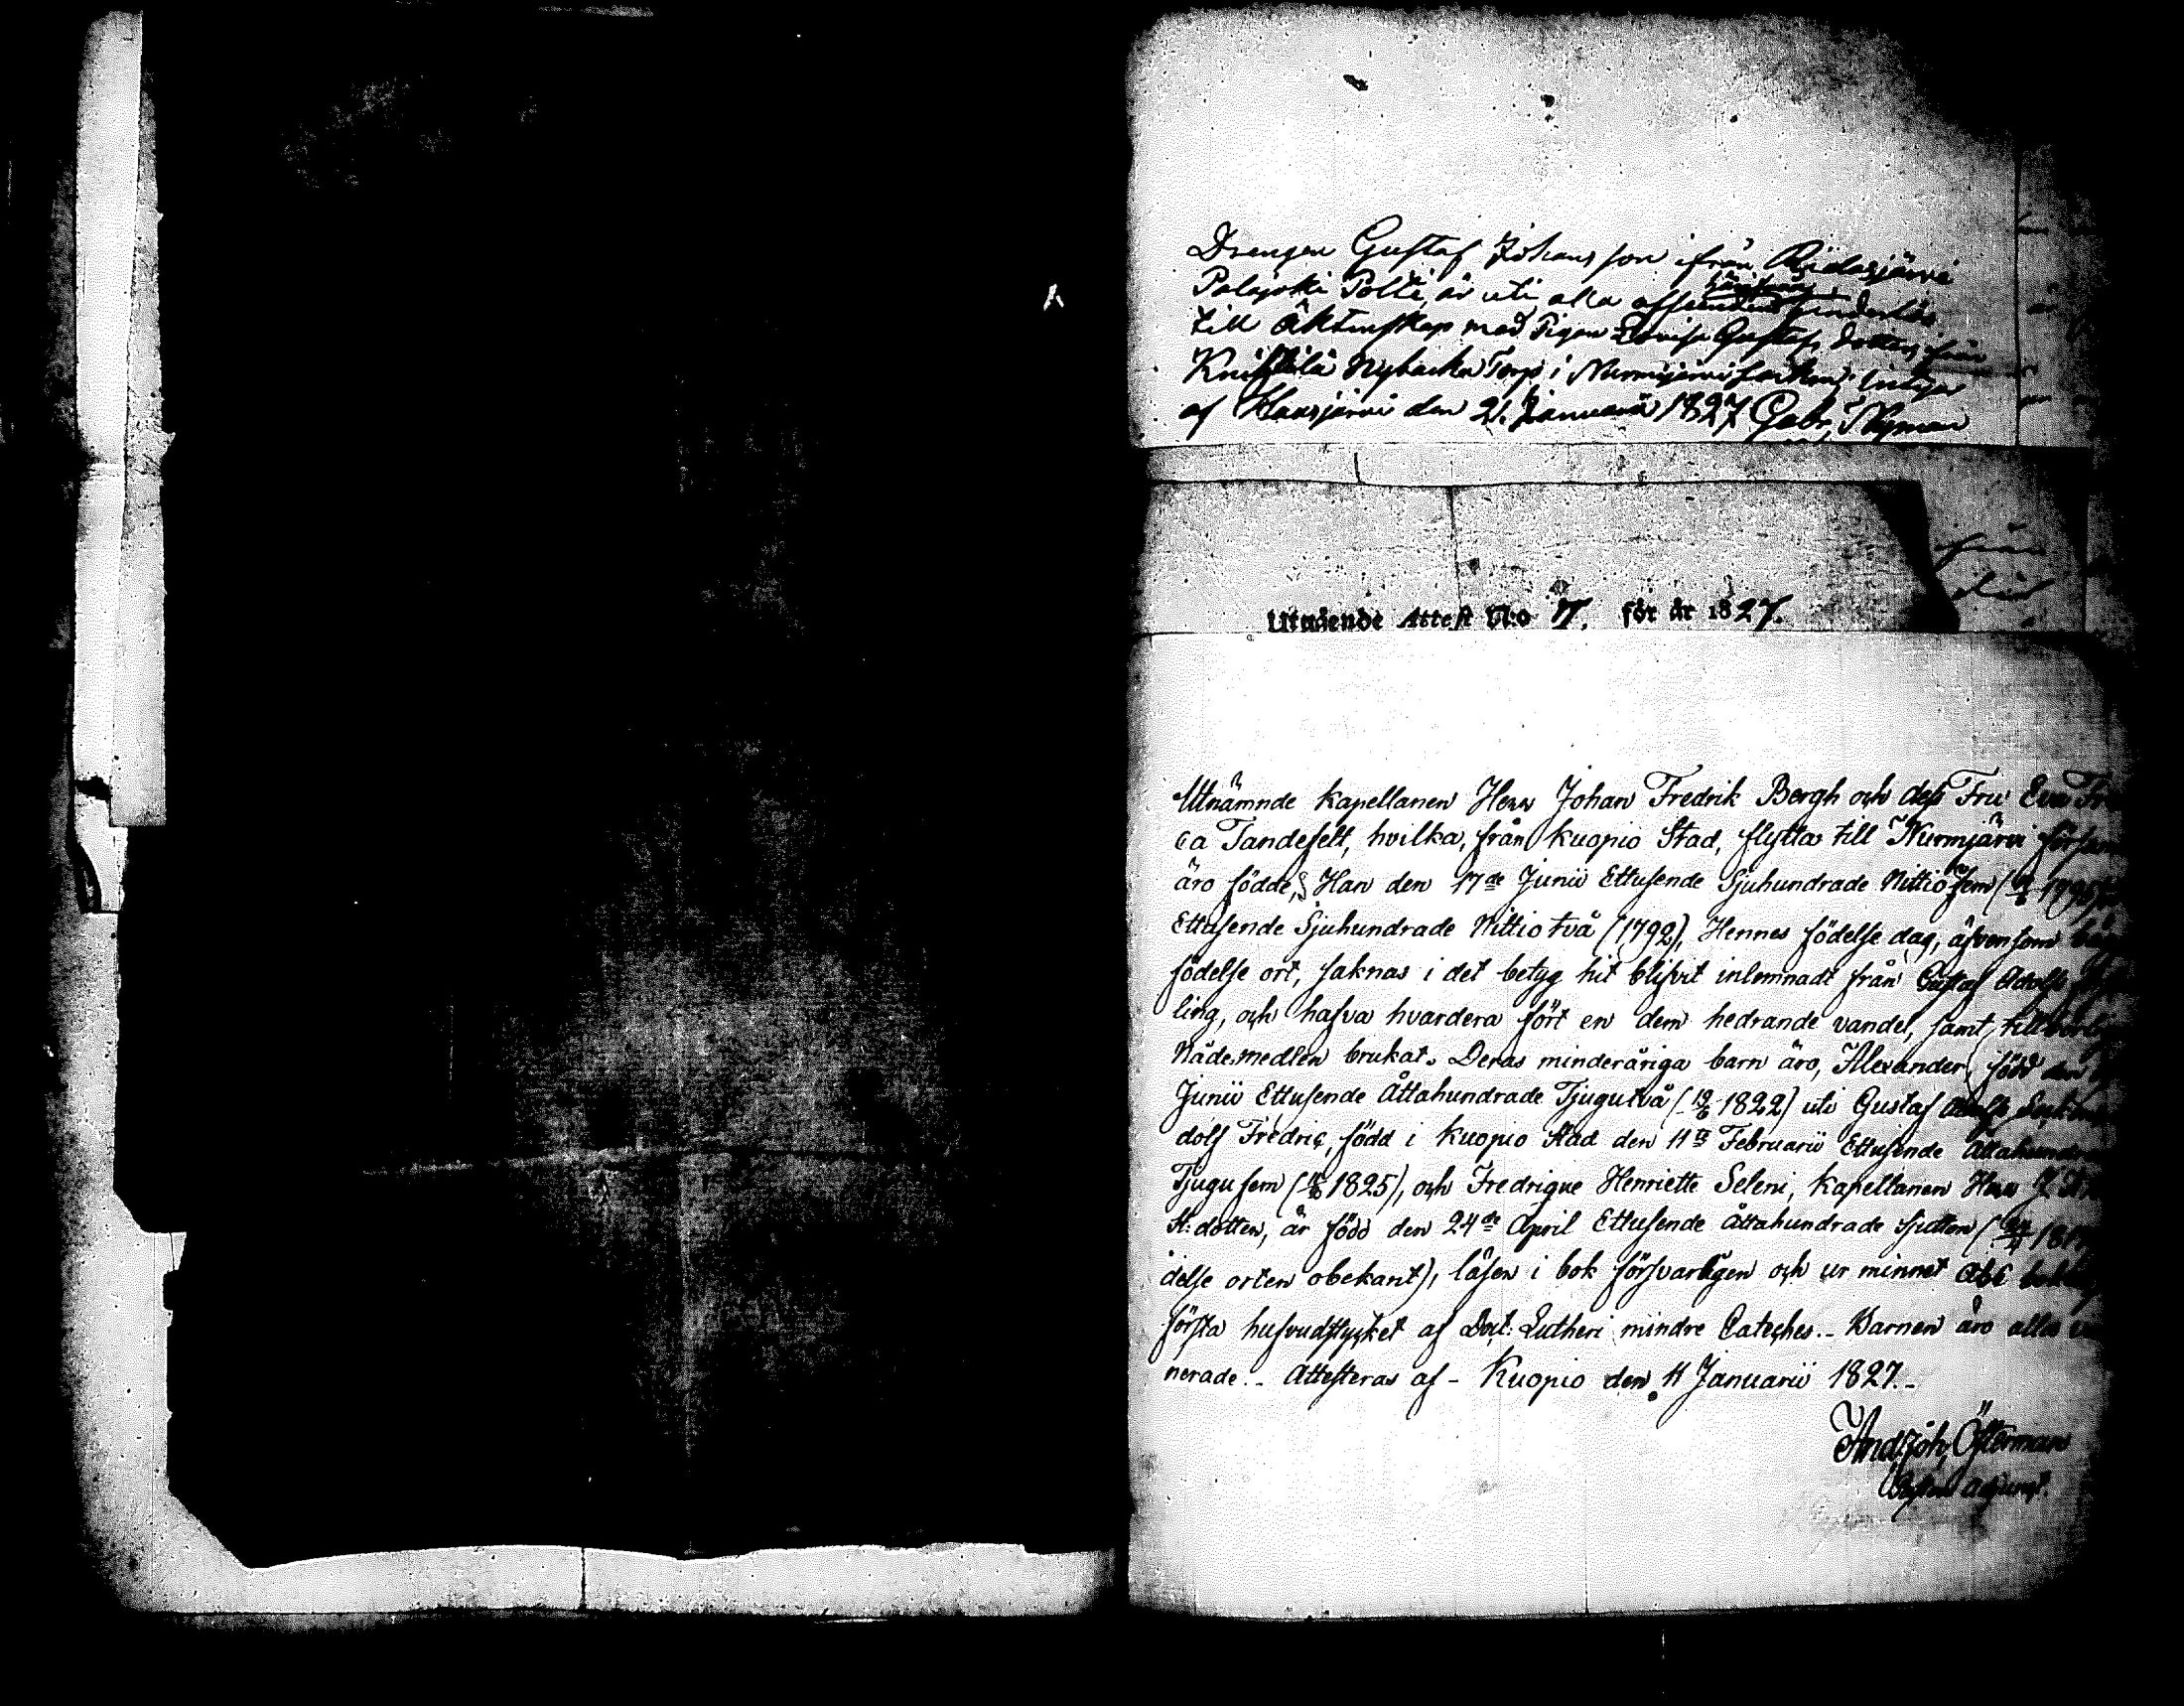 Drengen Gustaf Johansson ifrån Ridasjärvi
Palojoki Potti, är uti alla afseenden hinderlös
till Äktenskap med Pigan Lovisa Gustafs dotter, från
Knihtilä Nybacka Torp i Nurmijärvi socken, intygar
af Hausjärvi den 21. Januarii 1827 Gabr. Nyman
från
Utgående Attest N:o 17. för år 1827.
Utnämnde kapellanen Herr Johan Fredrik Bergh och dess Fru Eva
ca Tandefelt, hvilka, från Kuopio Stad, flytta till Nurmjärvi
äro födde, Han den 17de Junii Ettusende Sjuhundrade Nittiofem (17/6 1795),
Ettusende Sjuhundrade Nittiotvå (1792), Hennes födelse dag, äfvensom
födelse ort, saknas i det betyg hit blifvit inlemnadt från Gustaf Adolfs
ling, och hafva hvardera fört en dem hedrande vandel, samt
Nådemedlen brukat. Deras minderåriga barn äro, Alexander, född den
Junii Ettusende Åttahundrade Tjugutvå (19/6 1822) uti Gustaf Adolfs
dolf Fredric, född i Kuopio Stad den 11te Februarii Ettusende Åttahundra
Tjugufem (11/2 1825), och Fredrique Henriette Seleni, kapellanen Herr
St: dotter, är född den 24de April Ettusende Åttahundrade Sjutton (24/4 1817,
delse orten obekant), läser i bok försvarligen och ur minnet Abc
första hufvudstycket af Doct: Lutheri mindre Cateches. - Barnen äro alla
nerade. - Attesteras af - Kuopio den 11 Januarii 1827. -
And. Joh. Österman
Adjunct.